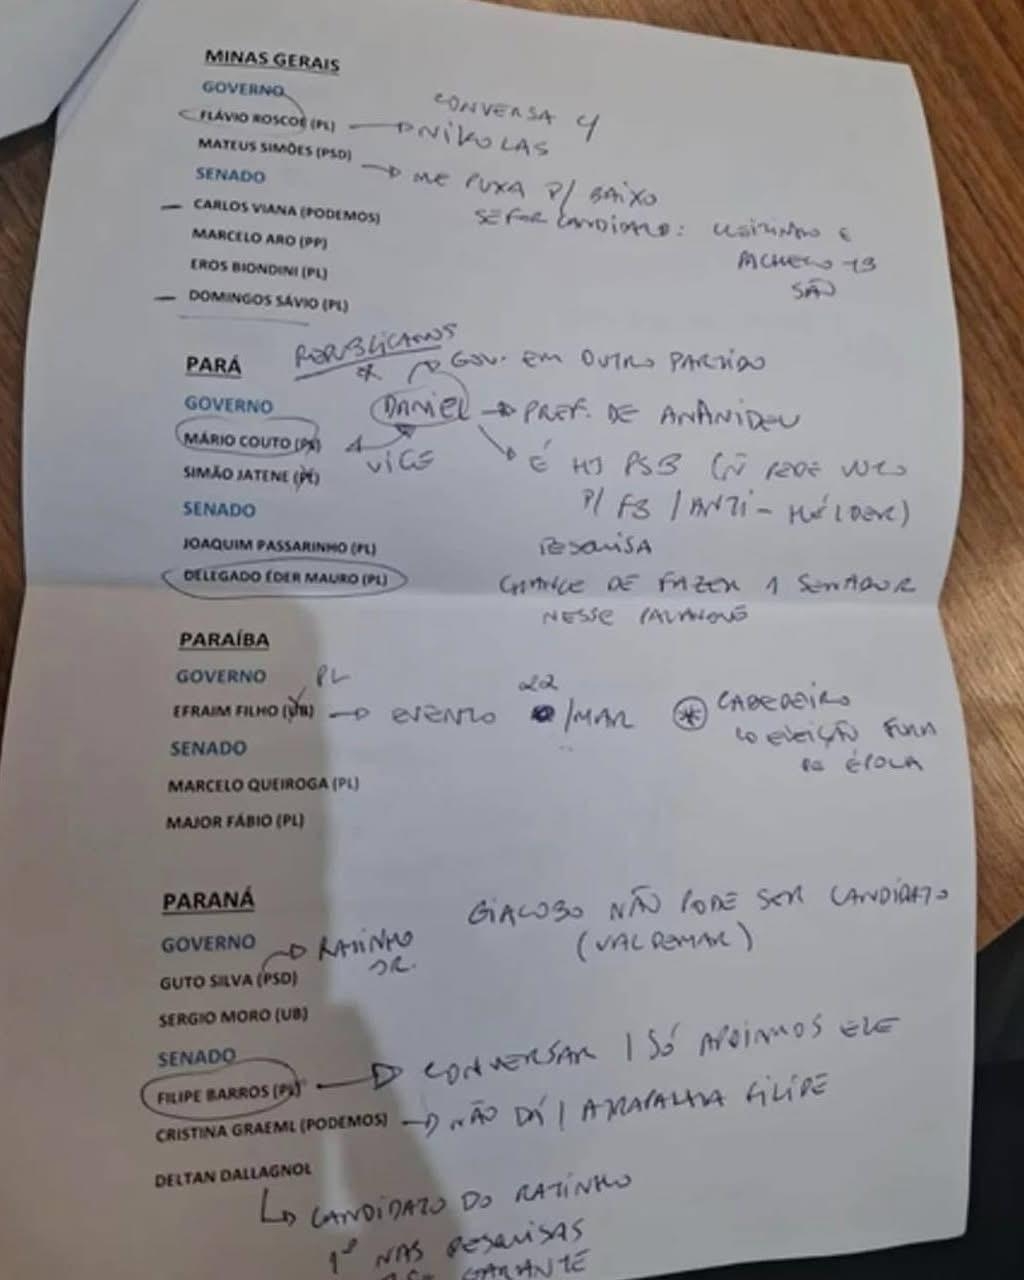 MINAS GERAIS
GOVERNO
CONVERSA
FLÁVIO ROSCOE (PL) NIKOLAS
MATEUS SIMÕES (PSD) ME PUXA P/ BAIXO
SENADO
SE FOR CANDIDATO: CLEITINHO E
CARLOS VIANA (PODEMOS)
PACHECO
MARCELO ARO (PP)
SÃO
EROS BIONDINI (PL)
DOMINGOS SÁVIO (PL)
REPUBLICANOS
PARÁ
* GOV. EM OUTRO PARTIDO
GOVERNO
DANIEL PREF. DE ANANINDEU
MÁRIO COUTO
VICE
É HJ PSB (Ñ PEDE VOTO
SIMÃO JATENE
P/ FB / ANTI-HÉLDER)
SENADO
PESQUISA
JOAQUIM PASSARINHO (PL)
DELEGADO ÉDER MAURO (PL)
CHANCE DE FAZER 1 SENADOR
NESSE PALANQUE
PARAÍBA
GOVERNO
PL
22
EFRAIM FILHO (UB) EVENTO /MAR * CABEDELO
ELEIÇÃO FORA
DE ÉPOCA
SENADO
MARCELO QUEIROGA (PL)
MAJOR FÁBIO (PL)
PARANÁ
GIACOBO NÃO PODE SER CANDIDATO
(VALDEMAR)
GOVERNO
RATINHO
JR.
GUTO SILVA (PSD)
SERGIO MORO (UB)
SENADO
CONVERSAR / SÓ APOIAMOS ELE
FILIPE BARROS (PL)
CRISTINA GRAEML (PODEMOS) NÃO DÁ / ATRAPALHA FILIPE
DELTAN DALLAGNOL
CANDIDATO DO RATINHO
1º NAS PESQUISAS
GARANTE